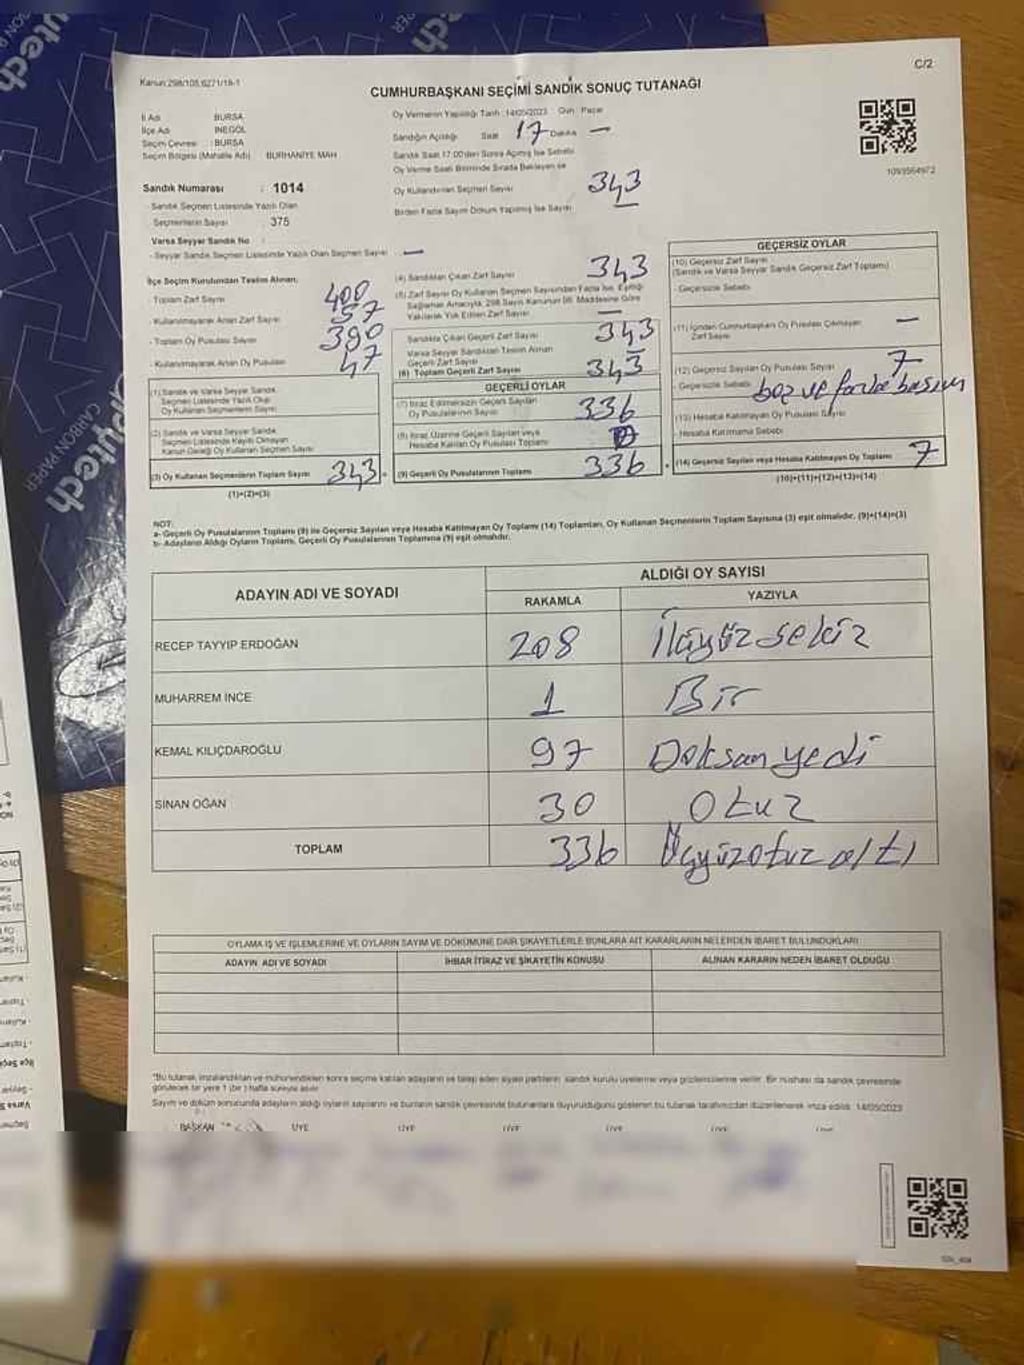 C/2
Kanun:298/105;6271/18-1
CUMHURBAŞKANI SEÇİMİ SANDIK SONUÇ TUTANAĞI
İl Adı BURSA
İlçe Adı İNEGÖL
Seçim Çevresi : BURSA
Seçim Bölgesi (Mahalle Adı) BURHANİYE MAH
Sandık Numarası : 1014
- Sandık Seçmen Listesinde Yazılı Olan
Seçmenlerin Sayısı 375
Varsa Seyyar Sandık No
- Seyyar Sandık Seçmen Listesinde Yazılı Olan Seçmen Sayısı : —
Oy Vermenin Yapıldığı Tarih : 14/05/2023 Gün : Pazar
Sandığın Açıldığı Saat 17 Dakika —
Sandık Saat 17:00'den Sonra Açılmış İse Sebebi
Oy Verme Saati Bitiminde Sırada Bekleyen ve
Oy Kullandırılan Seçmen Sayısı 343
Birden Fazla Sayım Döküm Yapılmış İse Sayısı —
1093564972
İlçe Seçim Kurulundan Teslim Alınan;
- Toplam Zarf Sayısı 400
- Kullanılmayarak Artan Zarf Sayısı 57
- Toplam Oy Pusulası Sayısı 390
- Kullanılmayarak Artan Oy Pusulası 47
(1) Sandık ve Varsa Seyyar Sandık
Seçmen Listesinde Yazılı Olup
Oy Kullanan Seçmenlerin Sayısı
(2) Sandık ve Varsa Seyyar Sandık
Seçmen Listesinde Kayıtlı Olmayan
Kanun Gereği Oy Kullanan Seçmen Sayısı
(3) Oy Kullanan Seçmenlerin Toplam Sayısı 343
(1)+(2)=(3)
(4) Sandıktan Çıkan Zarf Sayısı 343
(5) Zarf Sayısı Oy Kullanan Seçmen Sayısından Fazla İse, Eşitliği
Sağlamak Amacıyla, 298 Sayılı Kanunun 98. Maddesine Göre
Yakılarak Yok Edilen Zarf Sayısı —
Sandıkta Çıkan Geçerli Zarf Sayısı 343
Varsa Seyyar Sandıktan Teslim Alınan
Geçerli Zarf Sayısı —
(6) Toplam Geçerli Zarf Sayısı 343
GEÇERLİ OYLAR
(7) İtiraz Edilmeksizin Geçerli Sayılan
Oy Pusulalarının Sayısı 336
(8) İtiraz Üzerine Geçerli Sayılan veya
Hesaba Katılan Oy Pusulaları Toplamı
(9) Geçerli Oy Pusulalarının Toplamı 336
GEÇERSİZ OYLAR
(10) Geçersiz Zarf Sayısı
(Sandık ve Varsa Seyyar Sandık Geçersiz Zarf Toplamı)
- Geçersizlik Sebebi
(11) İçinden Cumhurbaşkanı Oy Pusulası Çıkmayan
Zarf Sayısı —
(12) Geçersiz Sayılan Oy Pusulası Sayısı 7
- Geçersizlik Sebebi boş ve fazla basım
(13) Hesaba Katılmayan Oy Pusulası Sayısı
- Hesaba Katılmama Sebebi
(14) Geçersiz Sayılan veya Hesaba Katılmayan Oy Toplamı 7
(10)+(11)+(12)+(13)=(14)
NOT:
a- Geçerli Oy Pusulalarının Toplamı (9) ile Geçersiz Sayılan veya Hesaba Katılmayan Oy Toplamı (14) Toplamları, Oy Kullanan Seçmenlerin Toplam Sayısına (3) eşit olmalıdır. (9)+(14)=(3)
b- Adayların Aldığı Oyların Toplamı, Geçerli Oy Pusulalarının Toplamına (9) eşit olmalıdır.
ADAYIN ADI VE SOYADI ALDIĞI OY SAYISI
RAKAMLA YAZIYLA
RECEP TAYYIP ERDOĞAN 208 İkiyüzsekiz
MUHARREM İNCE 1 Bir
KEMAL KILIÇDAROĞLU 97 Doksan yedi
SİNAN OĞAN 30 Otuz
TOPLAM 336 Üçyüzotuz altı
OYLAMA İŞ VE İŞLEMLERİNE VE OYLARIN SAYIM VE DÖKÜMÜNE DAİR ŞİKAYETLERLE BUNLARA AİT KARARLARIN NELERDEN İBARET BULUNDUKLARI
ADAYIN ADI VE SOYADI İHBAR İTİRAZ VE ŞİKAYETİN KONUSU ALINAN KARARIN NEDEN İBARET OLDUĞU
"Bu tutanak imzalandıktan ve mühürlendikten sonra seçime katılan adayların ve talep eden siyasi partilerin sandık kurulu üyelerine veya gözlemcilerine verilir. Bir nüshası da sandık çevresinde
görülecek bir yere 1 (bir) hafta süreyle asılır
Sayım ve döküm sonucunda adayların aldığı oyların sayılarını ve bunların sandık çevresinde bulunanlara duyurulduğunu gösteren bu tutanak tarafımızdan düzenlenerek imza edildi. 14/05/2023
BAŞKAN ÜYE ÜYE ÜYE ÜYE ÜYE
CARBON PAPER